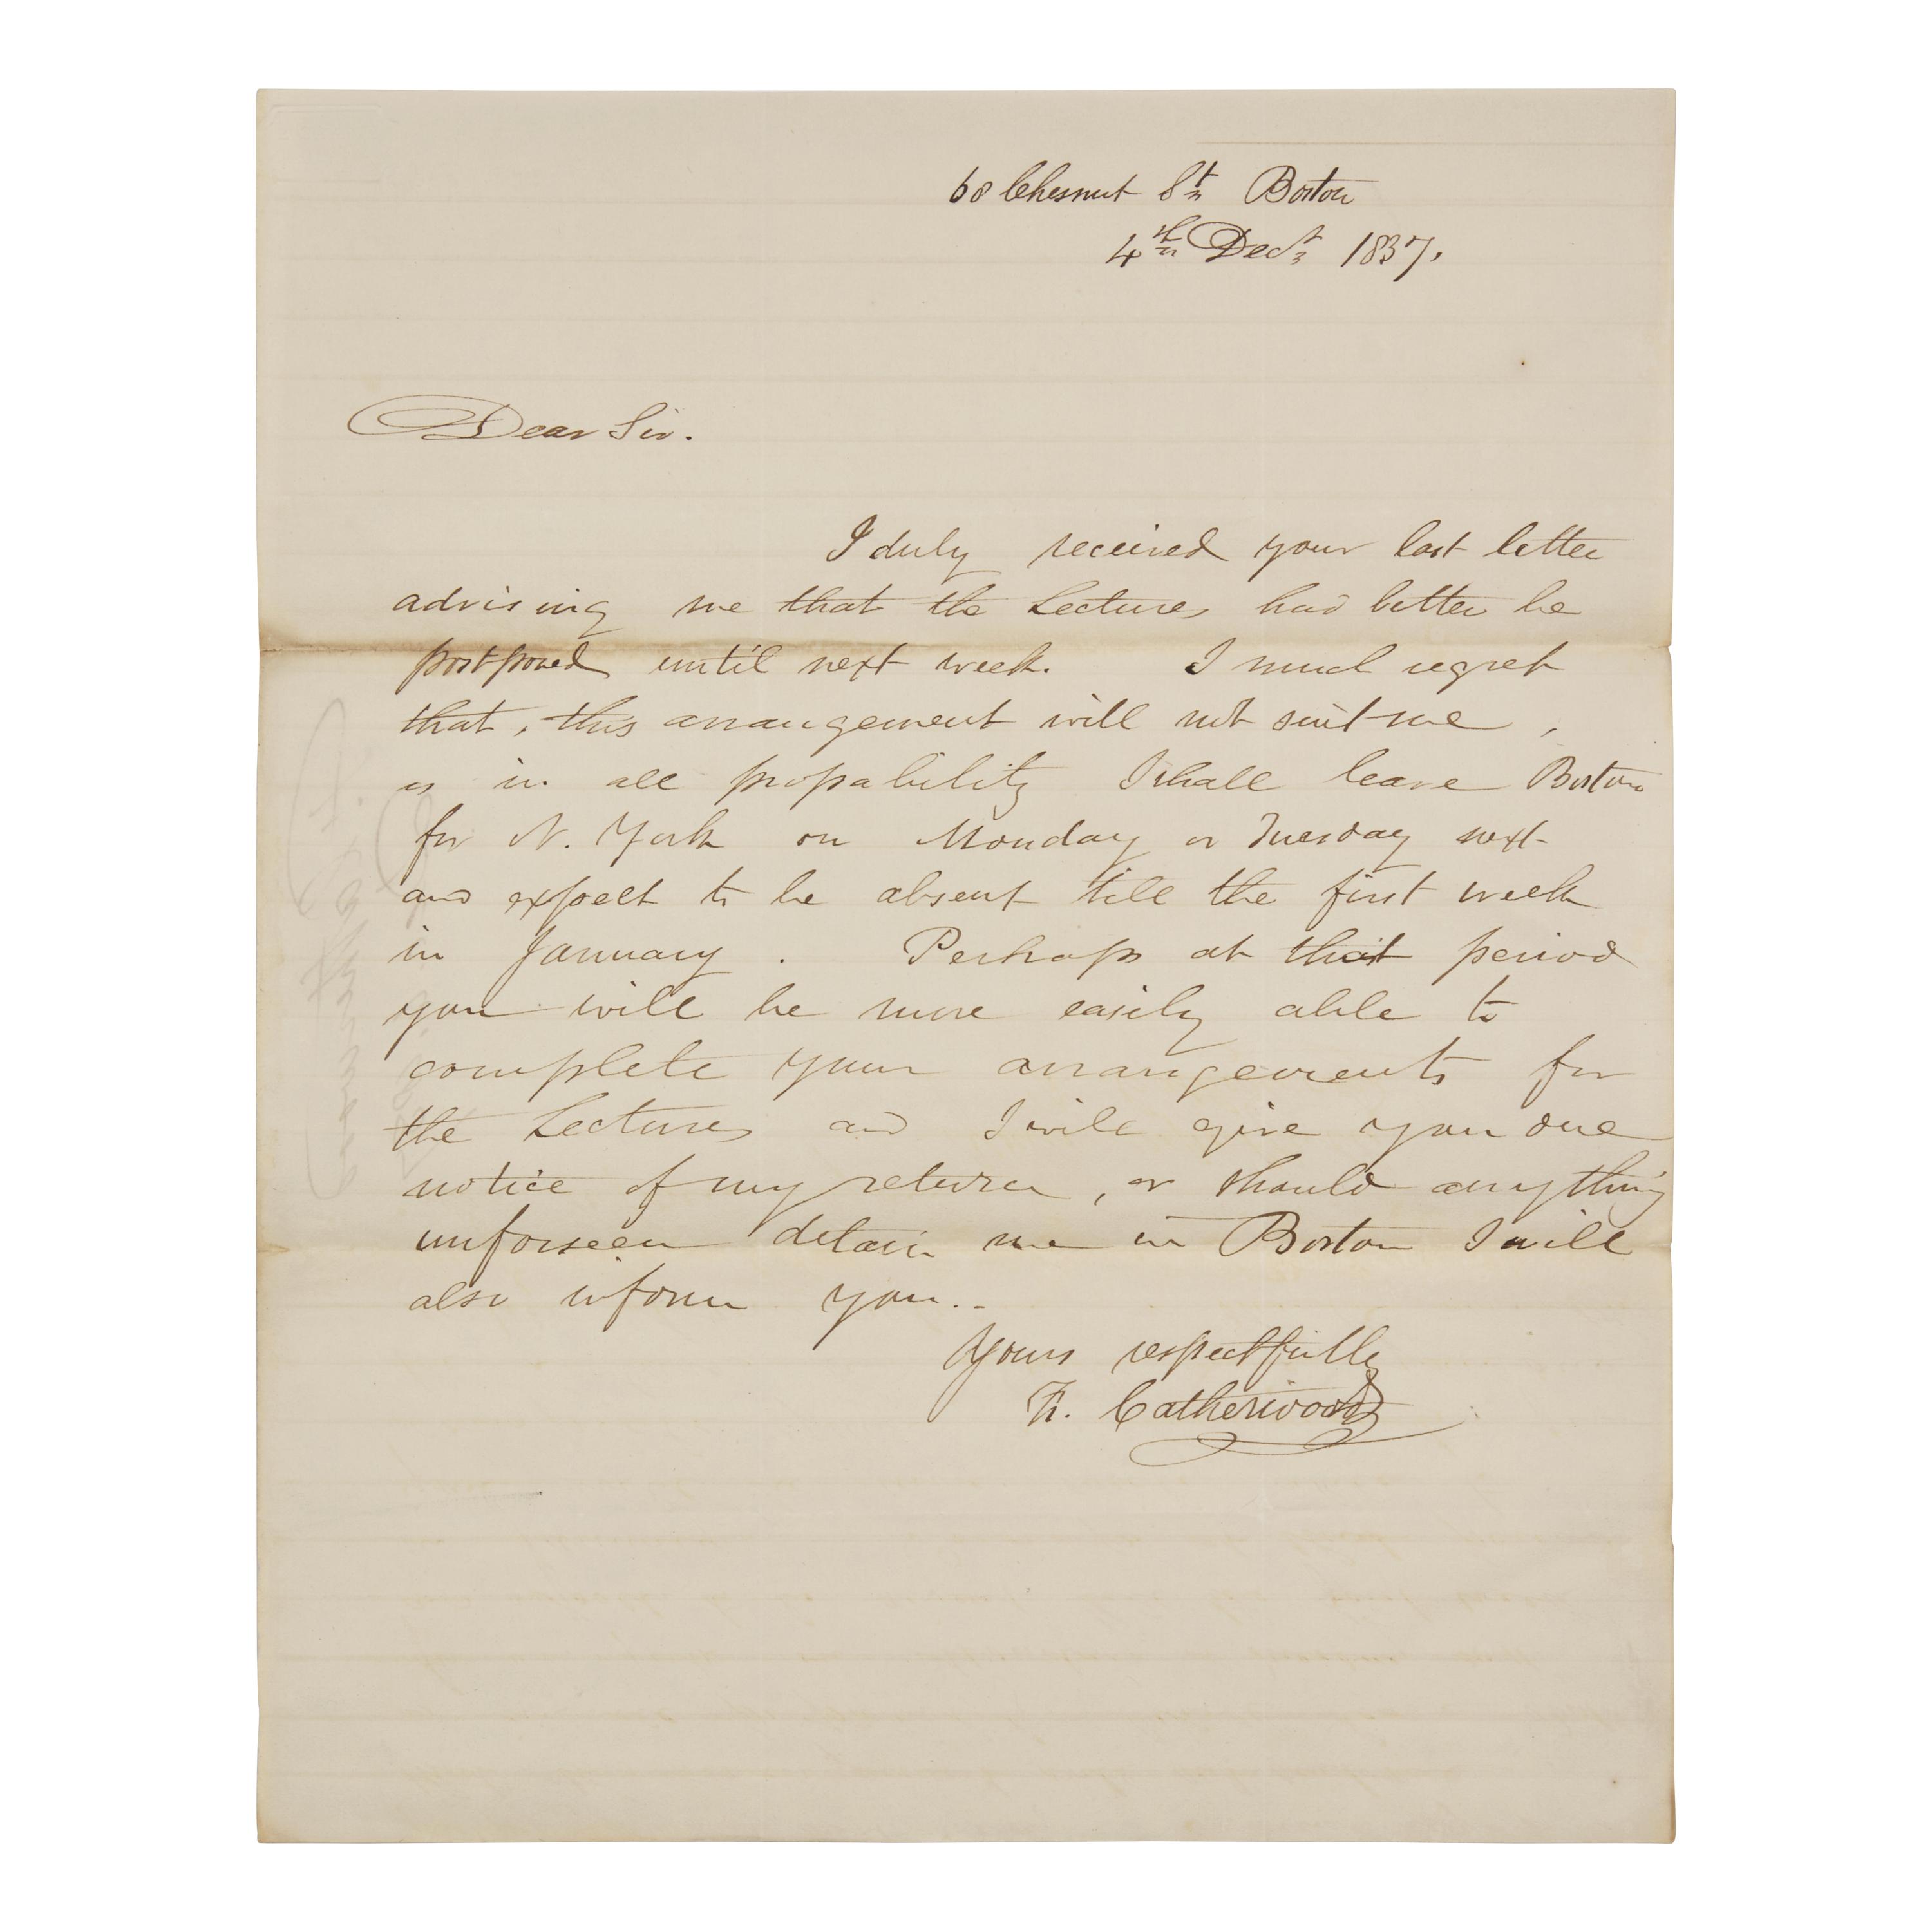 68 Chesnut St. Boston
4th Decr. 1837.
Dear Sir.
I duly received your last letter
advising me that the Lectures had better be
postponed until next week. I much regret
that, this arrangement will not suit me,
as in all propability I shall leave Boston
for N. York on Monday or Tuesday next
and expect to be absent till the first week
in January. Perhaps at that period
you will be more easily able to
complete your arrangements for
the Lectures and I will give you due
notice of my return, or should anything
unforseen detain me in Boston I will
also inform you..
Yours respectfully
F. Catherwood